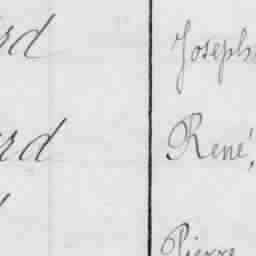 rd Joseph
rd René,
Pierre